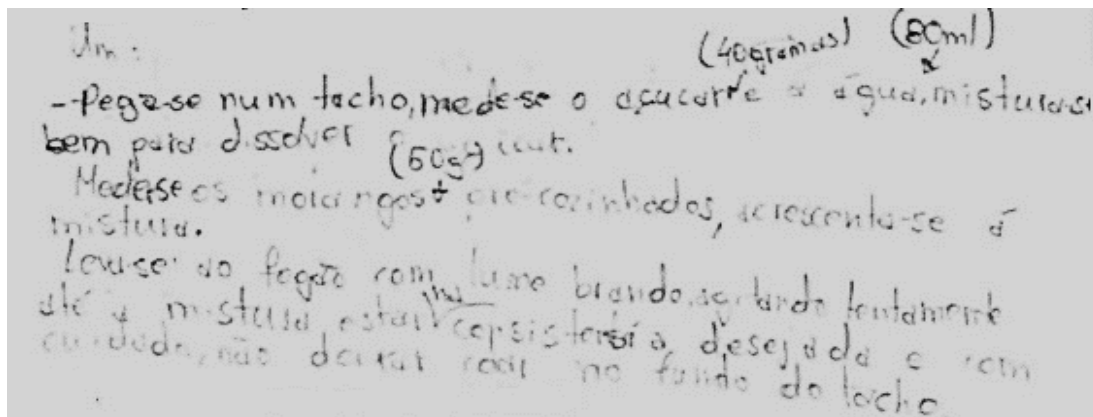 Um:
(40gramas) (80ml)
-Pega-se num tacho, mede-se o açucar e a água, mistura-se
bem para dissolver
(60g)
Mede-se os morangos pré-cozinhados, acrescenta-se á
mistura.
Leva-se ao fogão com lume brando, agitando lentamente
até a mistura estar na consistensia desejada e com
cuidado, não deixar no fundo do tacho